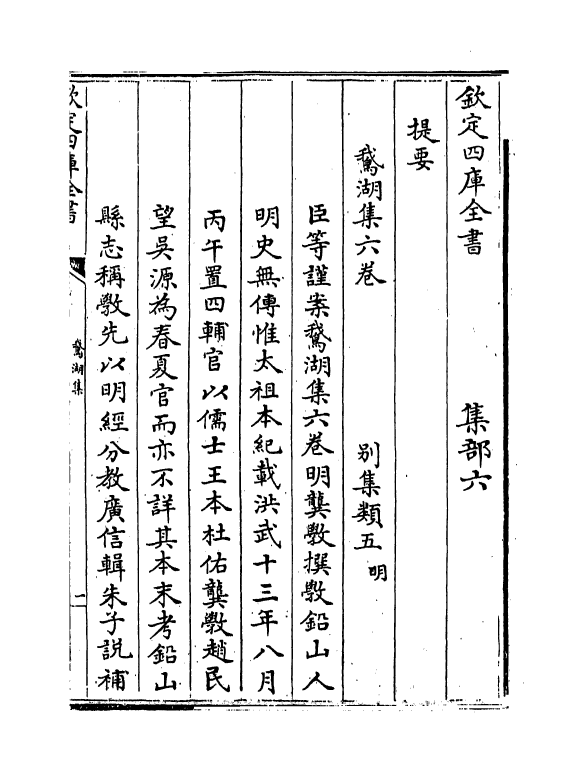 欽定四庫全書　集部六
提要
鵞湖集六卷　别集類五明
臣等謹案鵞湖集六卷明龔斆撰斆鉛山人
明史無傳惟太祖本紀載洪武十三年八月
丙午置四輔官以儒士王本杜佑龔斆趙民
望吳源為春夏官而亦不詳其本末考鉛山
縣志稱斆先以明經分教廣信輯朱子說補
欽定四庫全書
鵞湖集